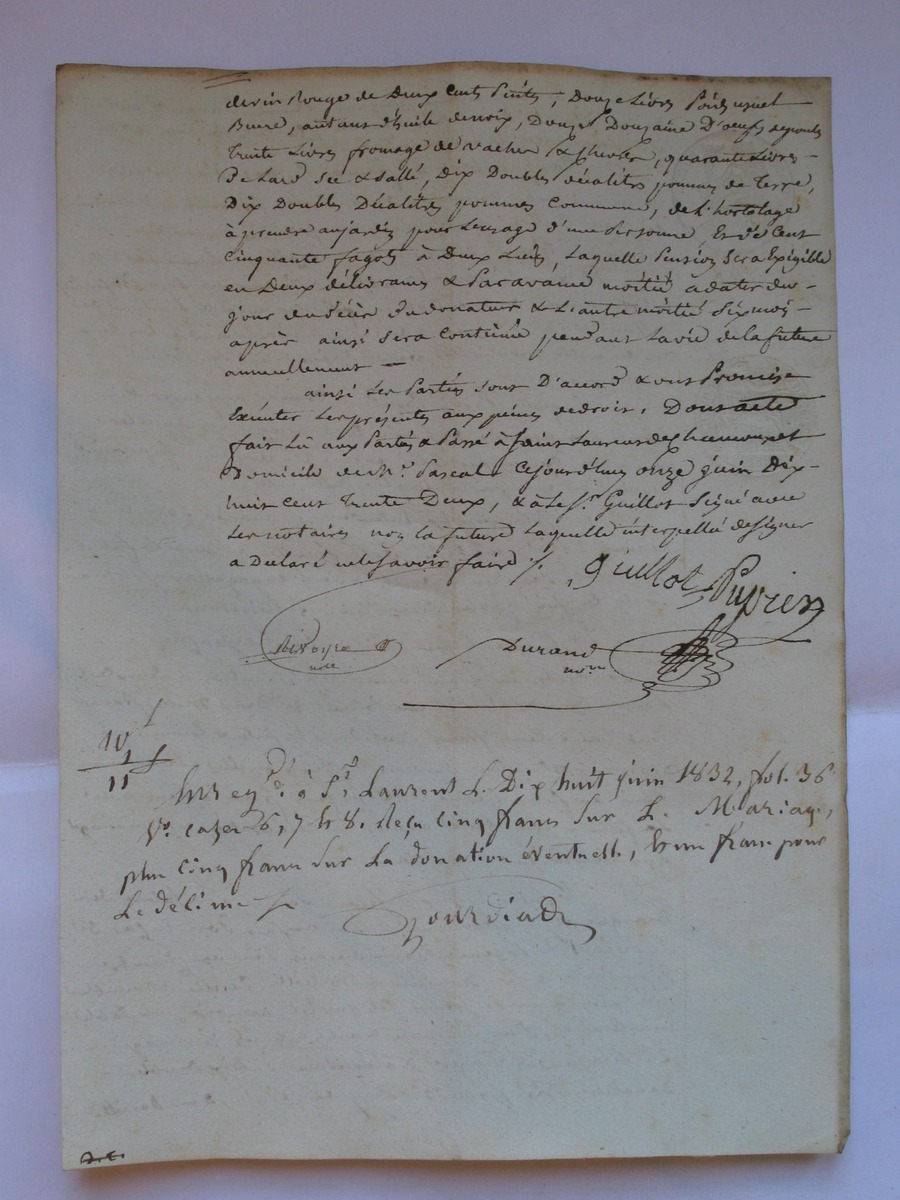 de vin Rouge de Deux Cents Pintes, Douze Livres Poids usuel
Buere, autant d'huile de noix, Douze Douzaine D'oeufs de poule
Trente Livres fromage de vaches & chevres, quarante Livres -
De Lard sec & sallé, Dix Doubles décalitres pommes de Terre,
Dix Doubles Décalitres pommes Commune, de l'hortolage
à prendre au jardin pour Lusage d'une Personne, Et de Cent
Cinquante fagots à Deux Liens, Laquelle Pension sera Exigible
en Deux délivrances & Par avance moitié a dater du -
jour du décès du donateur & L'autre moitié six mois -
après ainsi sera Continué pendant La vie de la future
annuellement -
ainsi Les Parties sont D'accord & ont Promis
Exécuter Les présentes aux peines de droit. Dont acte
fait Lû aux Parties & Passé à Saint Laurent de Chamousset
Domicile de Mr. Pascal Cejourd'huy onze juin Dix-
huit cent Trente Deux, & à Le Sr. Guillot Signé avec
Les notaires non La future Laquelle interpellé de signer
a Déclaré ne le savoir faire /.
Guillot
nore
Durand
nore
10 f
1 f
11
Enregd. à St Laurent Le Dix huit juin 1832, fol. 36
Vo. cazes 6, 7 & 8. Reçu Cinq francs Sur Le Mariage,
plus Cinq francs Sur La donation éventuelle, & un franc pour
Le décime